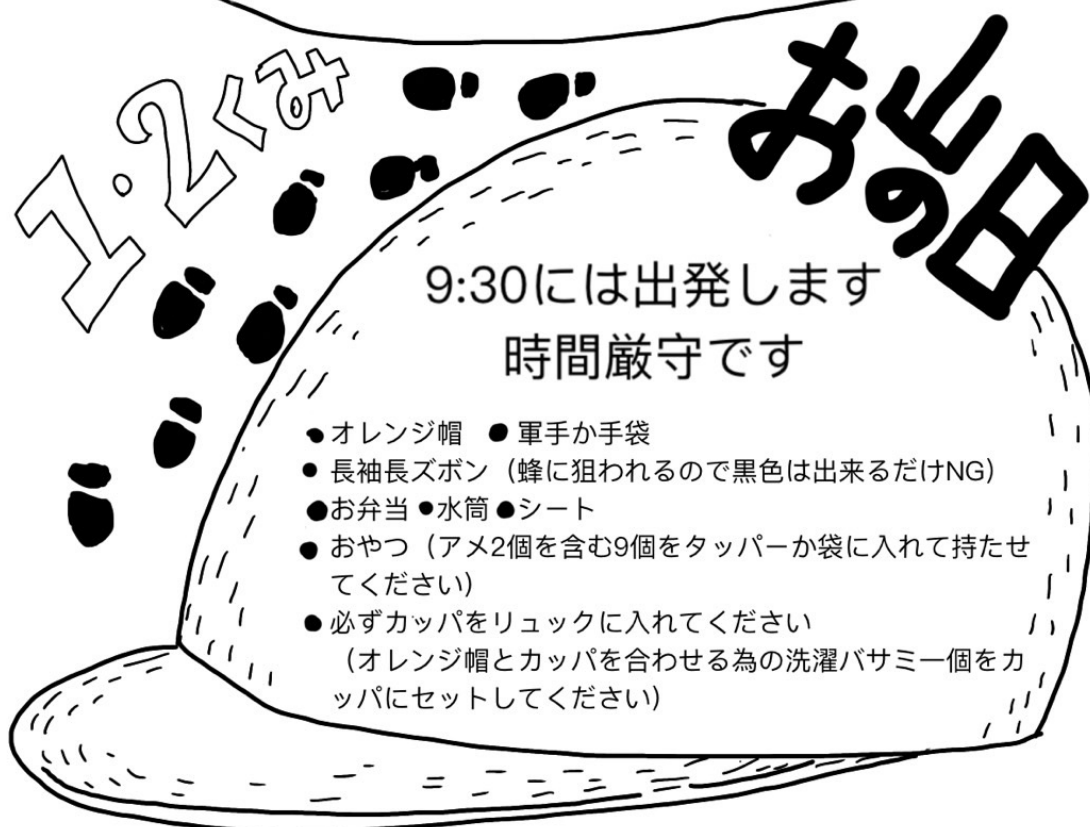 1・2くみ
お山の日
9:30には出発します
時間厳守です
●オレンジ帽 ●軍手か手袋
●長袖長ズボン（蜂に狙われるので黒色は出来るだけNG）
●お弁当●水筒●シート
●おやつ（アメ2個を含む9個をタッパーか袋に入れて持たせ
てください）
●必ずカッパをリュックに入れてください
（オレンジ帽とカッパを合わせる為の洗濯バサミ一個をカ
ッパにセットしてください）